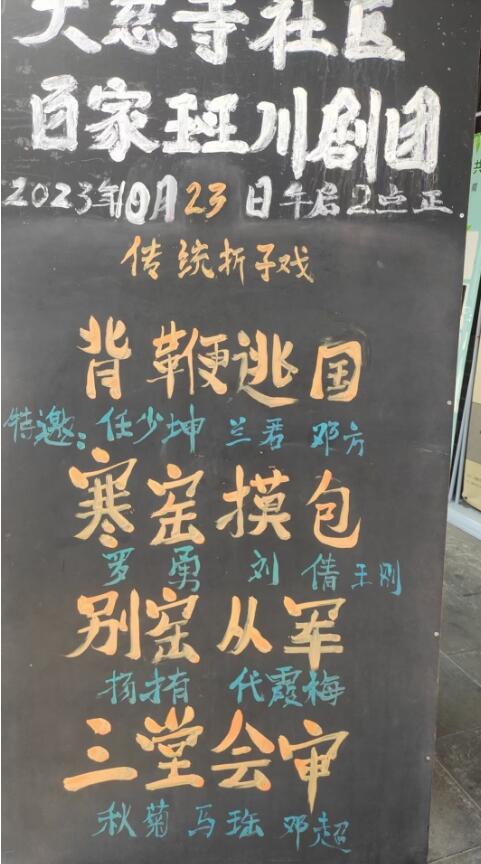 大慈寺社区
百家班川剧团
2023年10月23日午后2点正.
传统折子戏
背鞭逃国
特邀:任少坤 兰君 邓方
寒窑摸包
罗勇 刘倩 王刚
别窑从军
扬才有 代霞梅
三堂会审
秋菊 马瑶 邓超